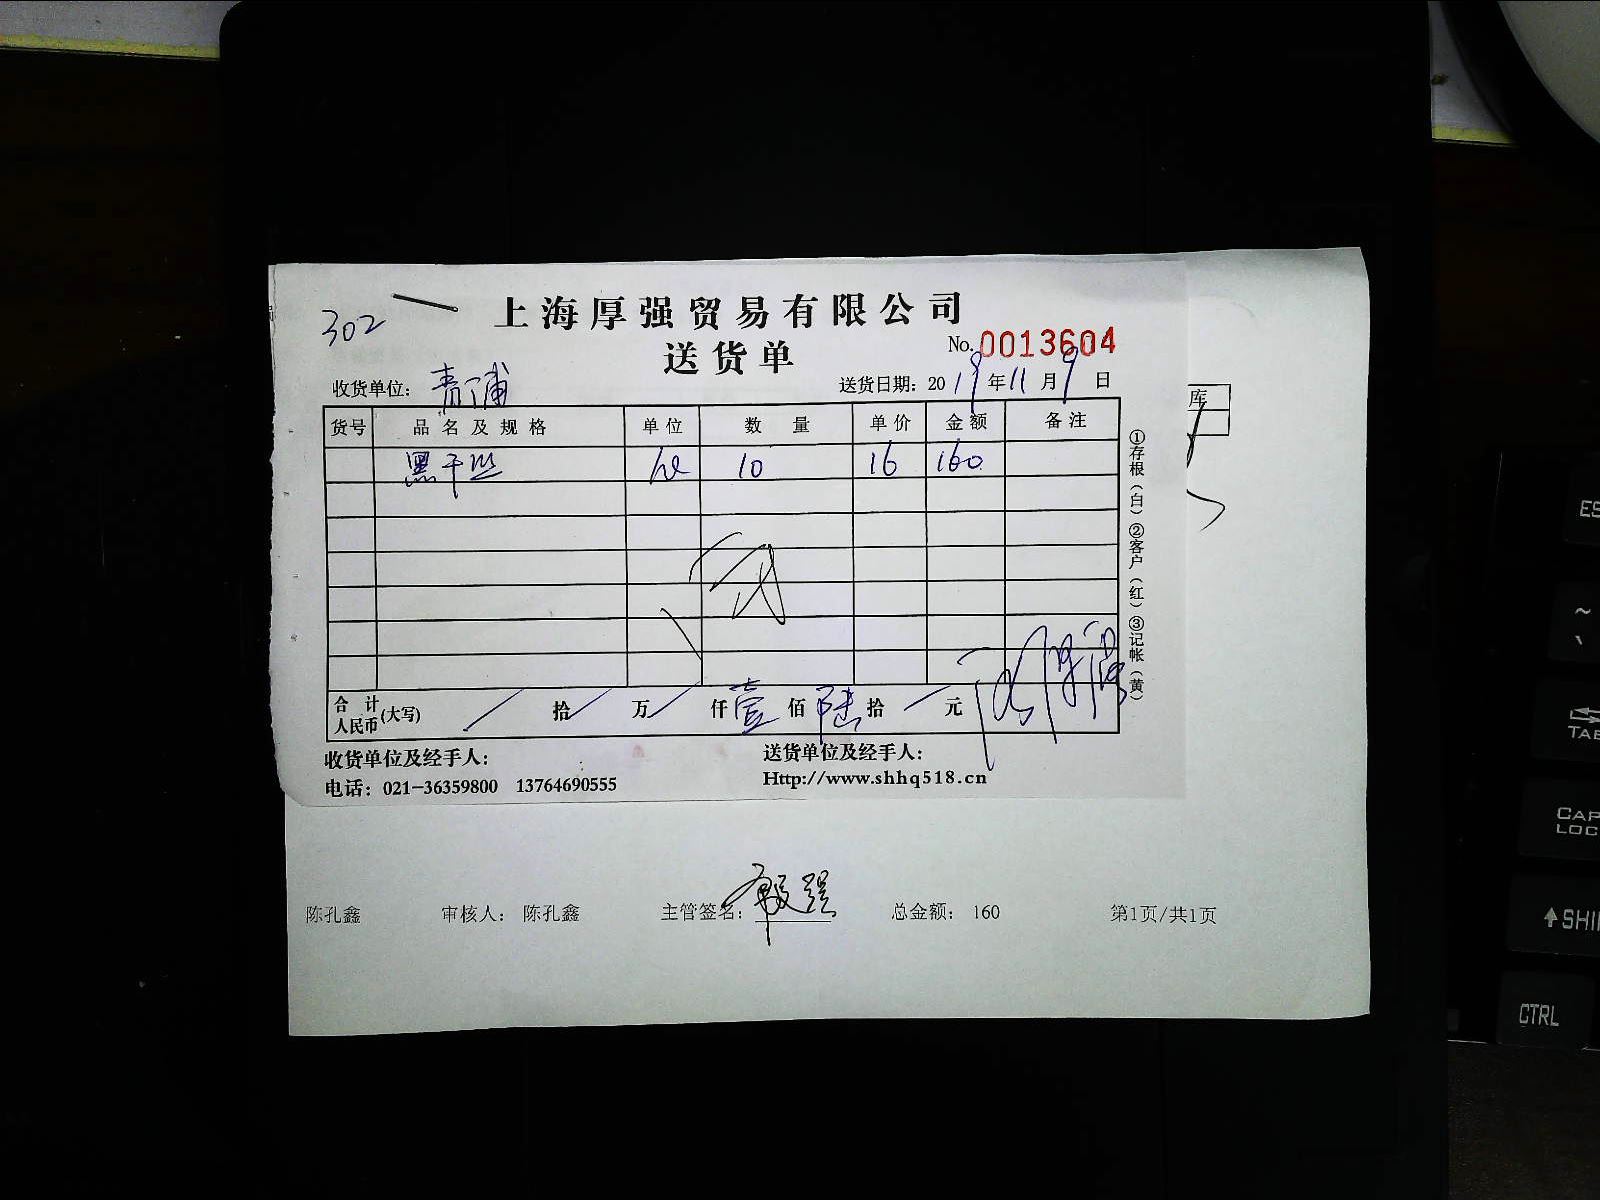 302
上海厚强贸易有限公司
送货单
No. 0013604
收货单位： 青浦
送货日期：2019年11月9日
货号 品名及规格 单位 数量 单价 金额 备注
黑干丝 10 16 160
合计人民币(大写) 拾 万 仟 壹 佰 陆 拾 元
收货单位及经手人：
送货单位及经手人：
电话：021-36359800 13764690555
Http://www.shhq518.cn
①存根（白）②客户（红）③记帐（黄）
库
陈孔鑫 审核人： 陈孔鑫 主管签名： 总金额： 160 第1页/共1页
ES
~
、
TAB
CAP
LOC
SHI
CTRL